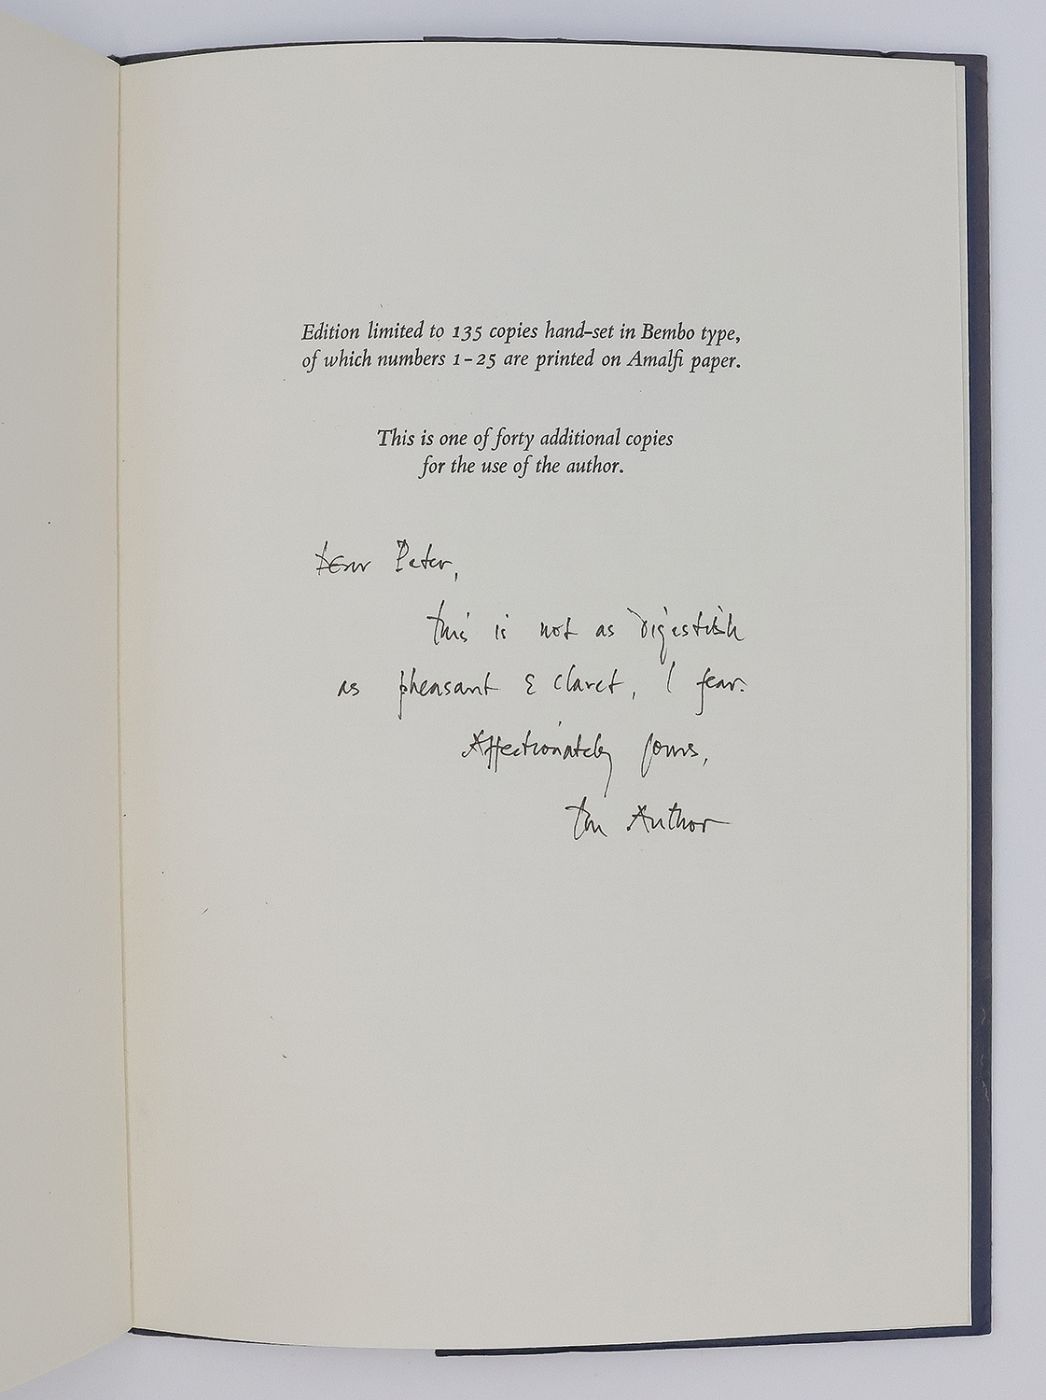 Edition limited to 135 copies hand-set in Bembo type,
of which numbers 1-25 are printed on Amalfi paper.
This is one of forty additional copies
for the use of the author.
Dear Peter,
this is not as digestible
as pheasant & claret, I fear.
Affectionately yours,
The Author